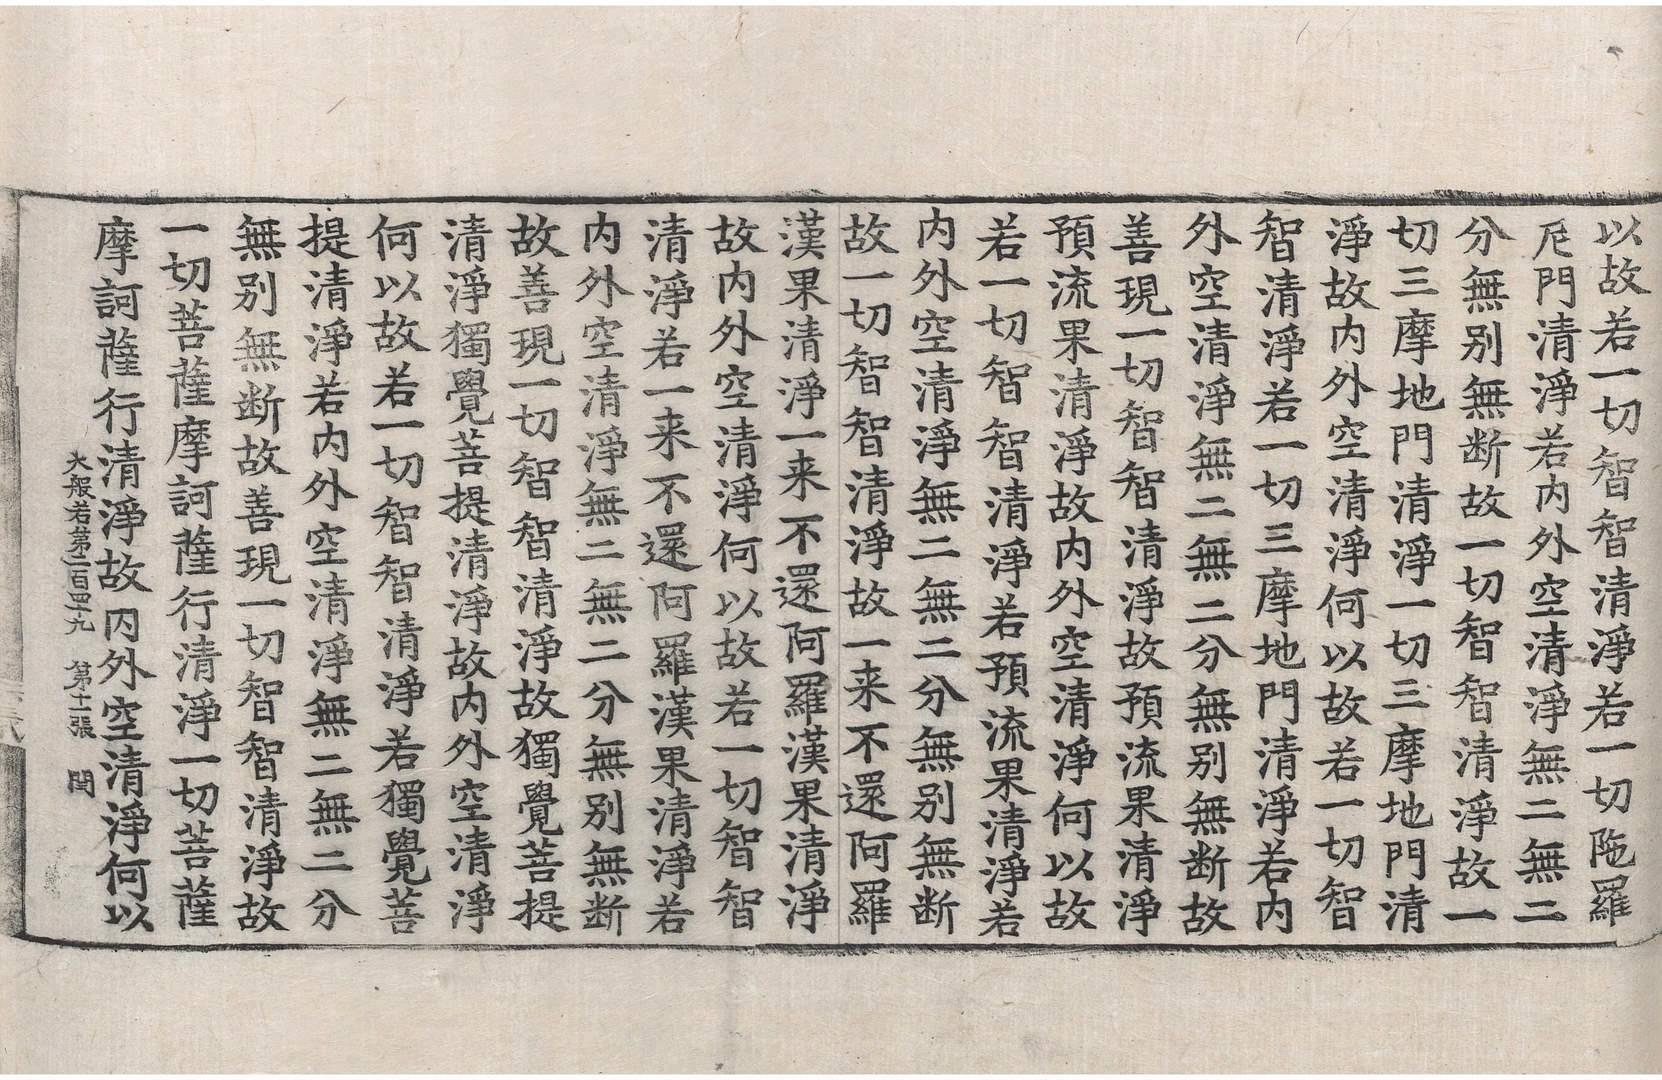 以故若一切智智清淨若一切陁羅
尼門清淨若内外空清淨無二無二
分無别無断故一切智智清淨故一
切三摩地門清淨一切三摩地門清
淨故内外空清淨何以故若一切智
智清淨若一切三摩地門清淨若内
外空清淨無二無二分無别無断故
善現一切智智清淨故預流果清淨
預流果清淨故内外空清淨何以故
若一切智智清淨若預流果清淨若
内外空清淨無二無二分無别無断
故一切智智清淨故一来不還阿羅
漢果清淨一来不還阿羅漢果清淨
故内外空清淨何以故若一切智智
清淨若一来不還阿羅漢果清淨若
内外空清淨無二無二分無别無断
故善現一切智智清淨故獨覺菩提
清淨獨覺菩提清淨故内外空清淨
何以故若一切智智清淨若獨覺菩
提清淨若内外空清淨無二無二分
無别無断故善現一切智智清淨故
一切菩薩摩訶薩行清淨一切菩薩
摩訶薩行清淨故内外空清淨何以
大般若第二百四十九 第十一張 閏